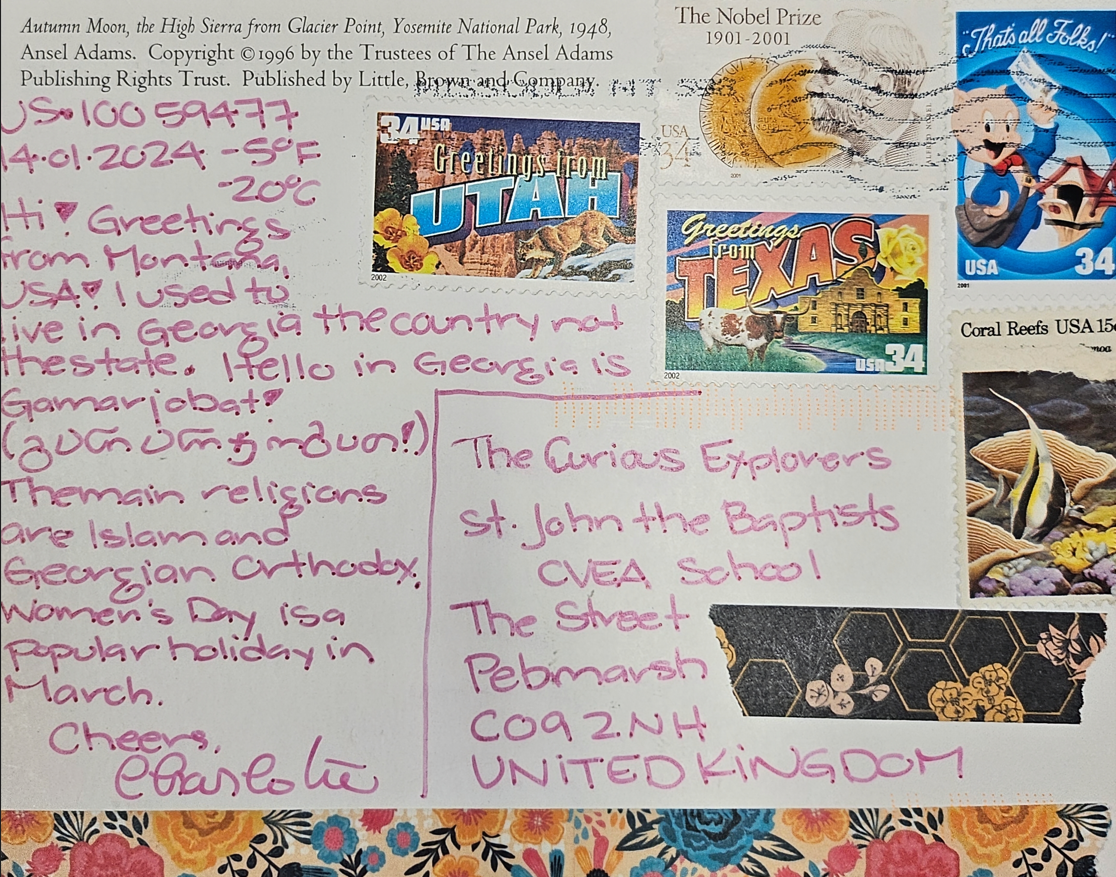 Autumn Moon, the High Sierra from Glacier Point, Yosemite National Park, 1948,
Ansel Adams. Copyright ©1996 by the Trustees of The Ansel Adams
Publishing Rights Trust. Published by Little, Brown and Company.
US-100 59477
14.01.2024 -5°F
-20°C
Hi♥ Greetings
from Montana,
USA♥ I used to
live in Georgia the country not
the state. Hello in Georgia is
Gamarjobat♥
Themain religions
are Islam and
Georgian Orthodox.
Women's Day is a
popular holiday in
March.
Cheers,
Charlotte
The Curious Explorers
St. John the Baptists
CVEA School
The Street
Pebmarsh
CO9 2NH
UNITED KINGDOM
34 USA
Greetings from
UTAH
2002
The Nobel Prize
1901-2001
USA
34
2001
"That's all Folks!"
USA 34
2001
Greetings
from
TEXAS
USA 34
2002
Coral Reefs USA 15c